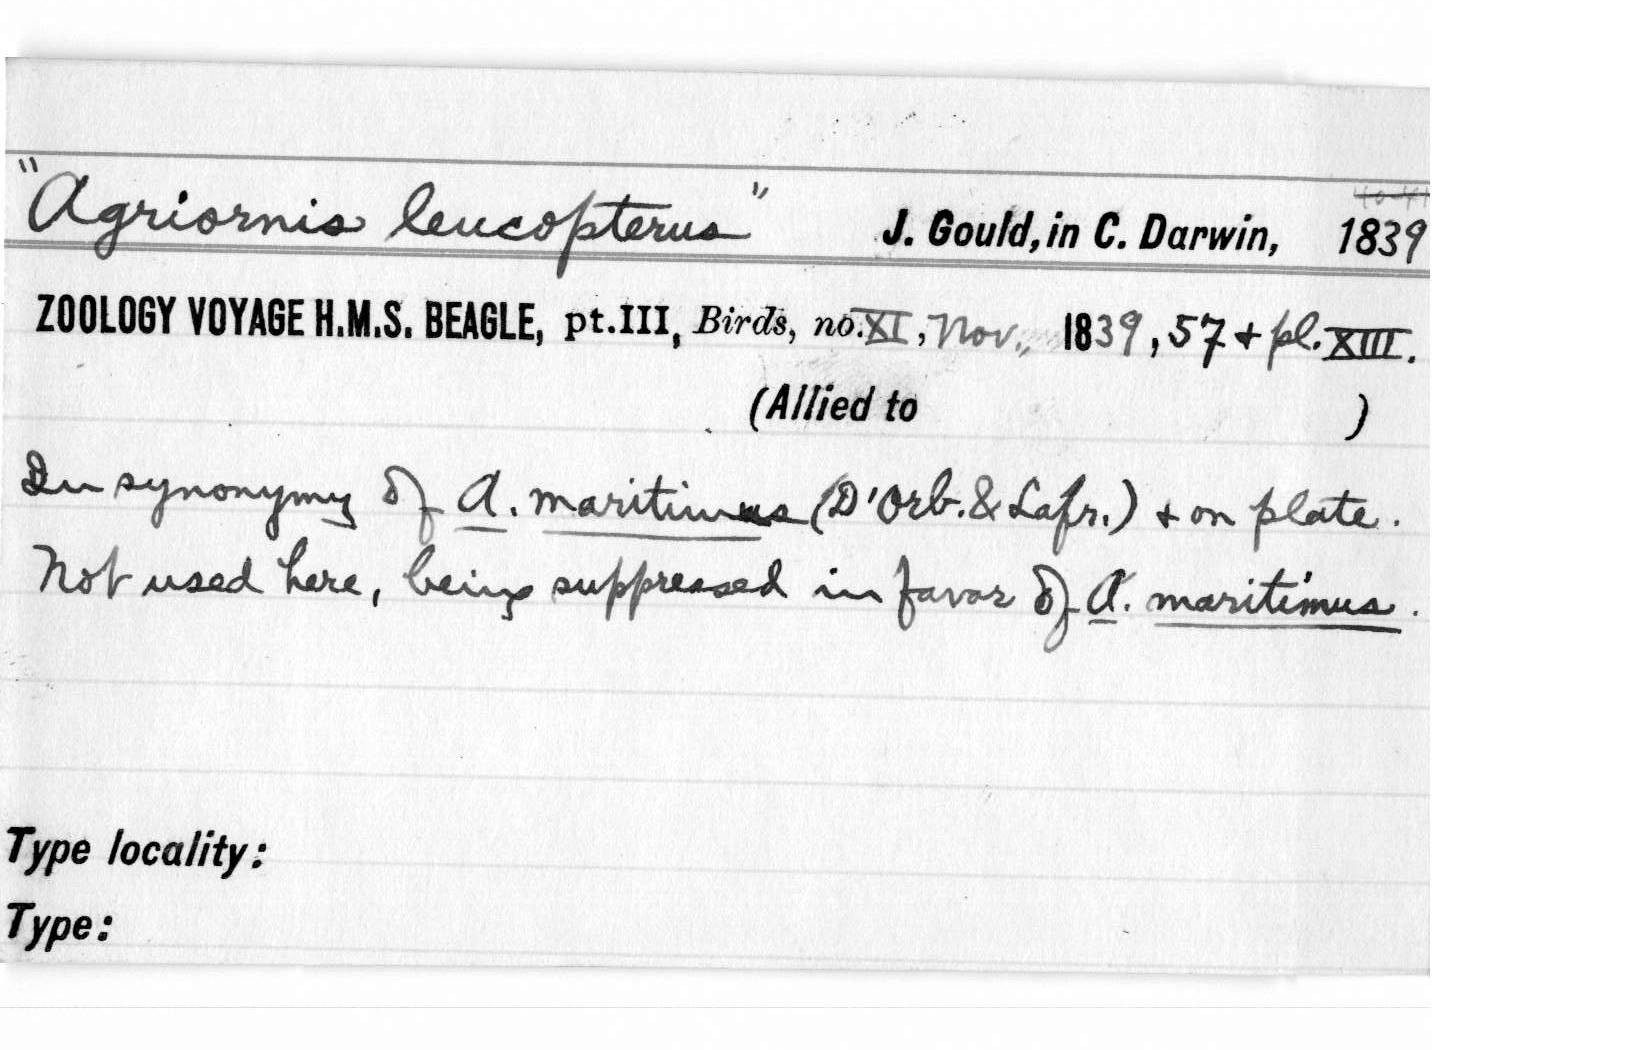 "Agriornis leucopterus" J. Gould, in C. Darwin, 1839
ZOOLOGY VOYAGE H.M.S. BEAGLE, pt.III, Birds, no.XI, Nov., 1839, 57 + pl. XIII.
(Allied to )
In synonymy of A. maritimus (D'Orb. & Lafr.) + on plate.
Not used here, being suppressed in favor of A. maritimus.
Type locality:
Type: